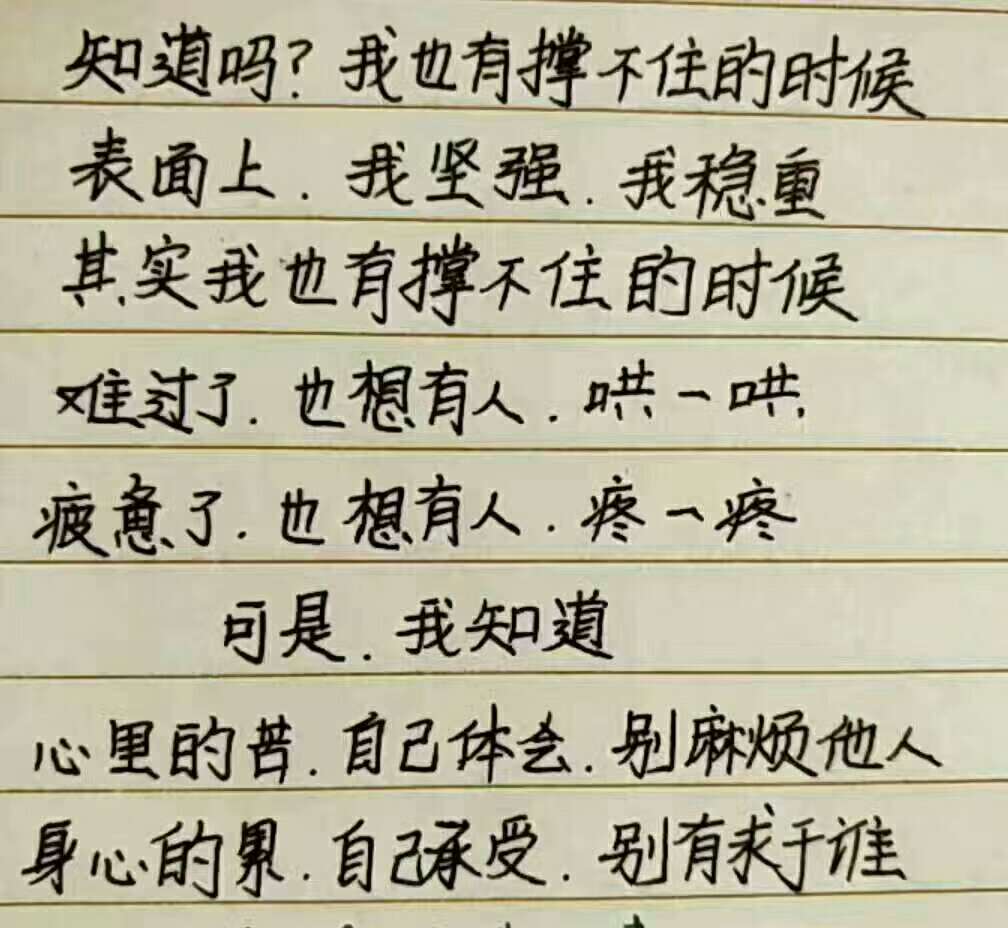 知道吗？我也有撑不住的时候
表面上．我坚强．我稳重
其实我也有撑不住的时候
难过了．也想有人．哄一哄
疲惫了．也想有人．疼一疼
可是．我知道
心里的苦．自己体会．别麻烦他人
身心的累．自己承受．别有求于谁